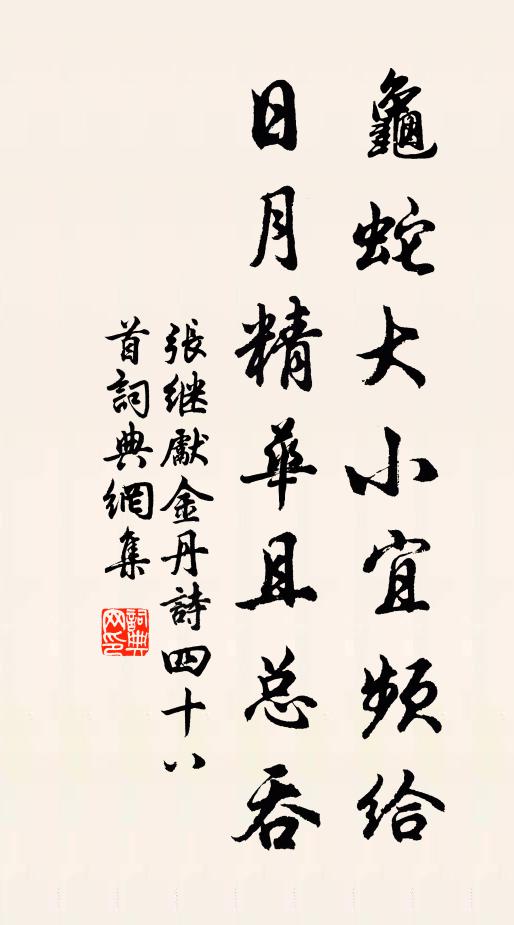 龜蛇大小宜頻給
日月精華且总吞
張继獻金丹詩四十八
首詞典網集
詞典
网印